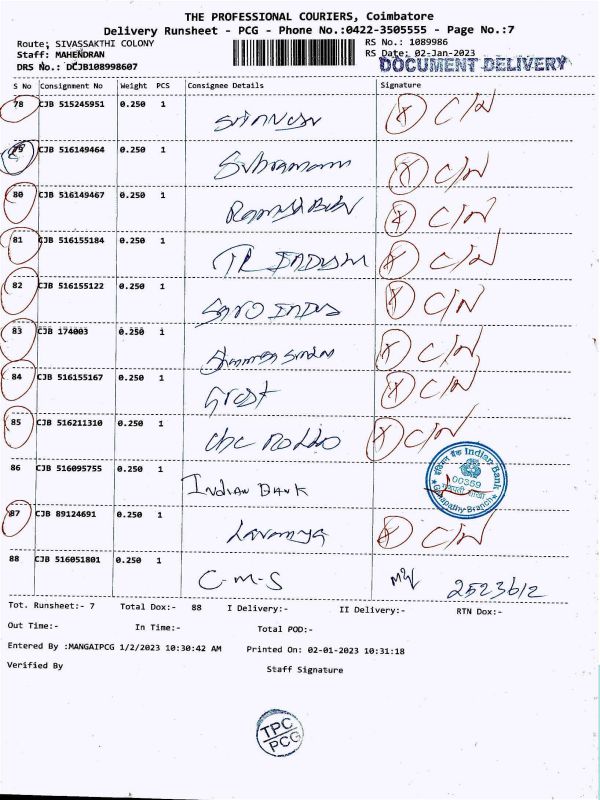 THE PROFESSIONAL COURIERS, Coimbatore
Delivery Runsheet - PCG - Phone No.:0422-3505555 - Page No.:7
Route: SIVASAKTHI COLONY RS No.: 1089986
Staff: MAHENDRAN RS Date: 02-Jan-2023
DRS No.: DCJB108998607 DOCUMENT DELIVERY
S No Consignment No Weight PCS Consignee Details Signature
78 CJB 515245951 0.250 1 C/N
79 CJB 516149464 0.250 1 Subramani C/N
80 CJB 516149467 0.250 1 C/N
81 CJB 516155184 0.250 1 C/N
82 CJB 516155122 0.250 1 C/N
83 CJB 174003 0.250 1 C/N
84 CJB 516155167 0.250 1 C/N
85 CJB 516211310 0.250 1 C/N
86 CJB 516095755 0.250 1 INDIAN BANK इंडियन बैंक Indian Bank 00369 Ganapathy Branch
87 CJB 89124691 0.250 1 Lavanya C/N
88 CJB 516051801 0.250 1 C-M-S 2523612
Tot. Runsheet:- 7 Total Dox:- 88 I Delivery:- II Delivery:- RTN Dox:-
Out Time:- In Time:- Total POD:-
Entered By :MANGAIPCG 1/2/2023 10:30:42 AM Printed On: 02-01-2023 10:31:18
Verified By Staff Signature
TPC
PCG